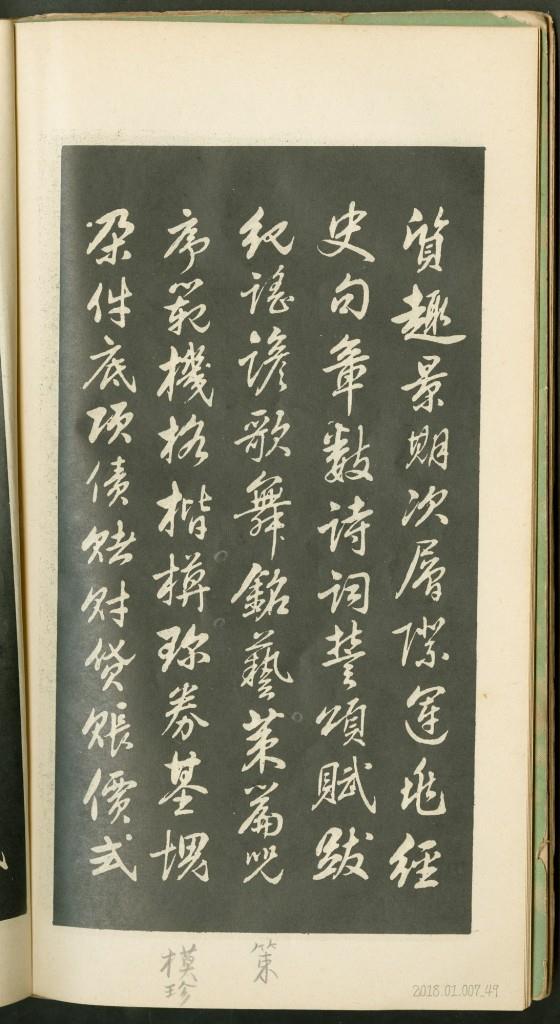 質趣景期次層際運兆經
史句章數詩詞贊頌賦跋
紀謠諺歌舞銘藝策篇呪
序範機格楷模珍券基塊
朵件底項債賬財貸賬價式
策
模珍
2018.01.007_49